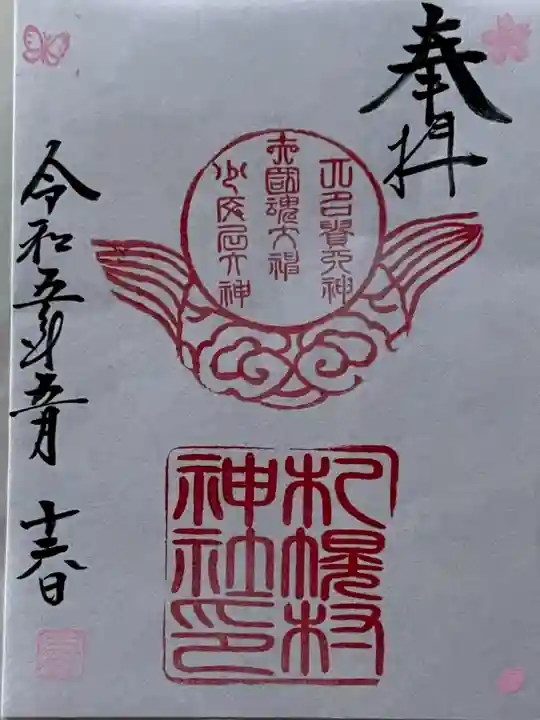 奉拝
大名貴大神
大國魂大神
少彦名大神
札幌村
神社印
令和五年五月 日